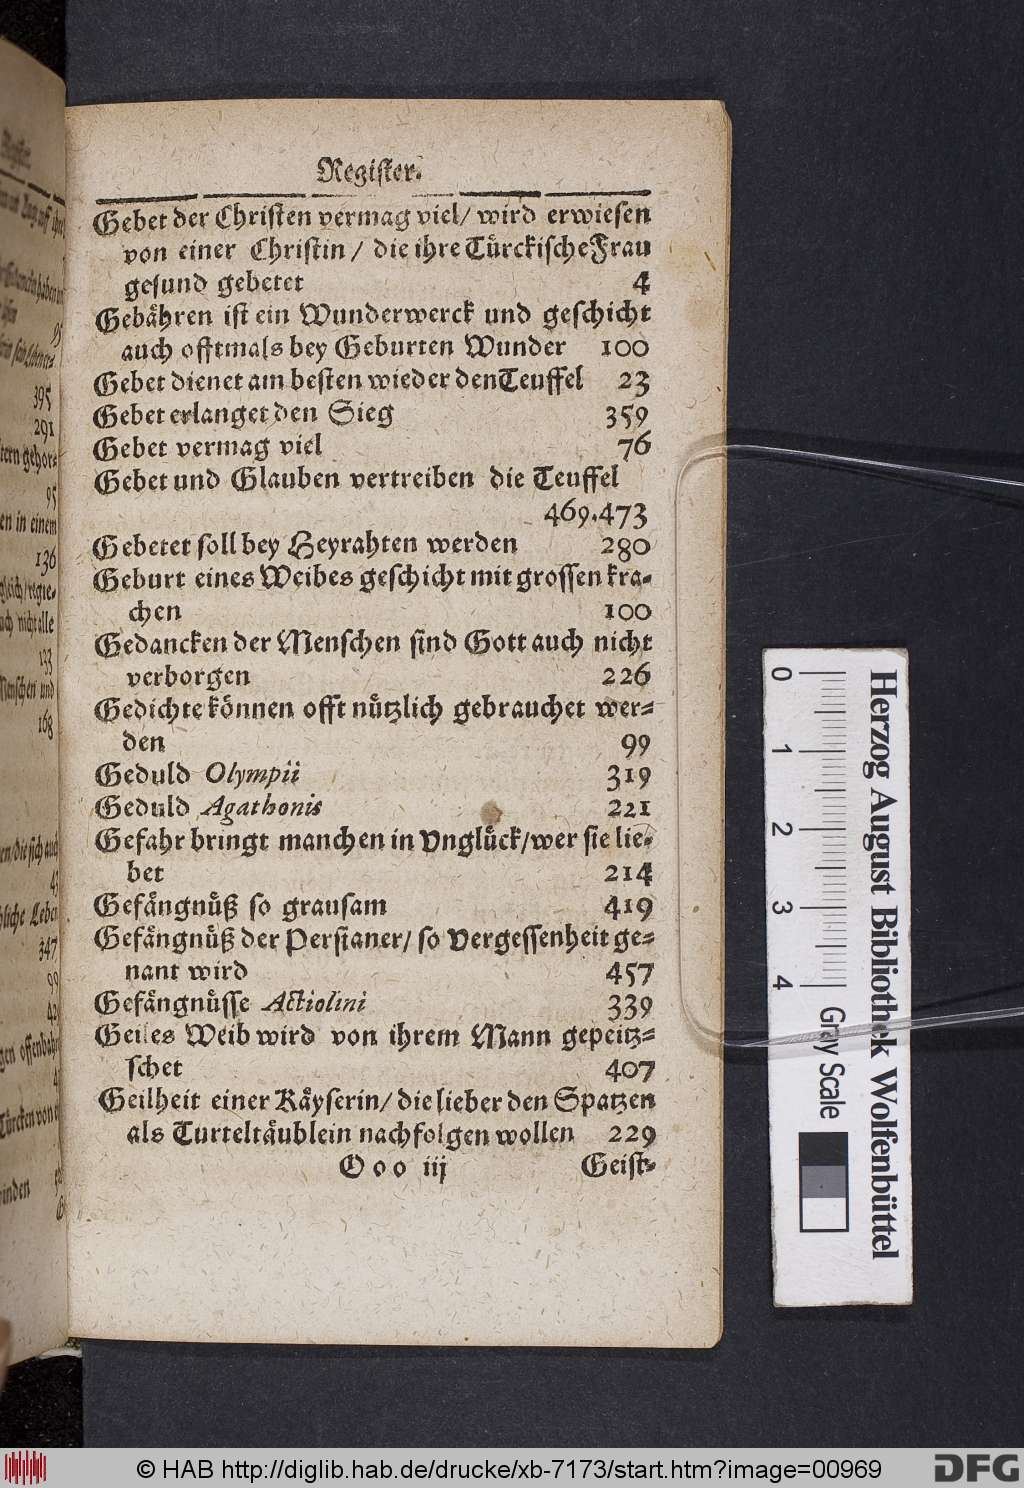 Register.
Gebet der Christen vermag viel/ wird erwiesen
von einer Christin / die ihre Türckische Frau
gesund gebetet 4
Gebähren ist ein Wunderwerck und geschicht
auch offtmals bey Geburten Wunder 100
Gebet dienet am besten wieder den Teuffel 23
Gebet erlanget den Sieg 359
Gebet vermag viel 76
Gebet und Glauben vertreiben die Teuffel
469.473
Gebetet soll bey Heyrahten werden 280
Geburt eines Weibes geschicht mit grossen kra-
chen 100
Gedancken der Menschen sind Gott auch nicht
verborgen 226
Gedichte können offt nützlich gebrauchet wer-
den 99
Geduld Olympii 319
Geduld Agathonis 221
Gefahr bringt manchen in Vnglück/wer sie lie-
bet 214
Gefängnüß so grausam 419
Gefängnüß der Persianer/ so Vergessenheit ge-
nant wird 457
Gefängnüsse Actiolini 339
Geiles Weib wird von ihrem Mann gepeitz-
schet 407
Geilheit einer Käyserin/ die lieber den Spatzen
als Turteltäublein nachfolgen wollen 229
O o o iij Geist-
395
291
95
en in einem
136
133
168
347
0 1 2 3 4
Herzog August Bibliothek Wolfenbüttel
Gray Scale
© HAB http://diglib.hab.de/drucke/xb-7173/start.htm?image=00969
DFG